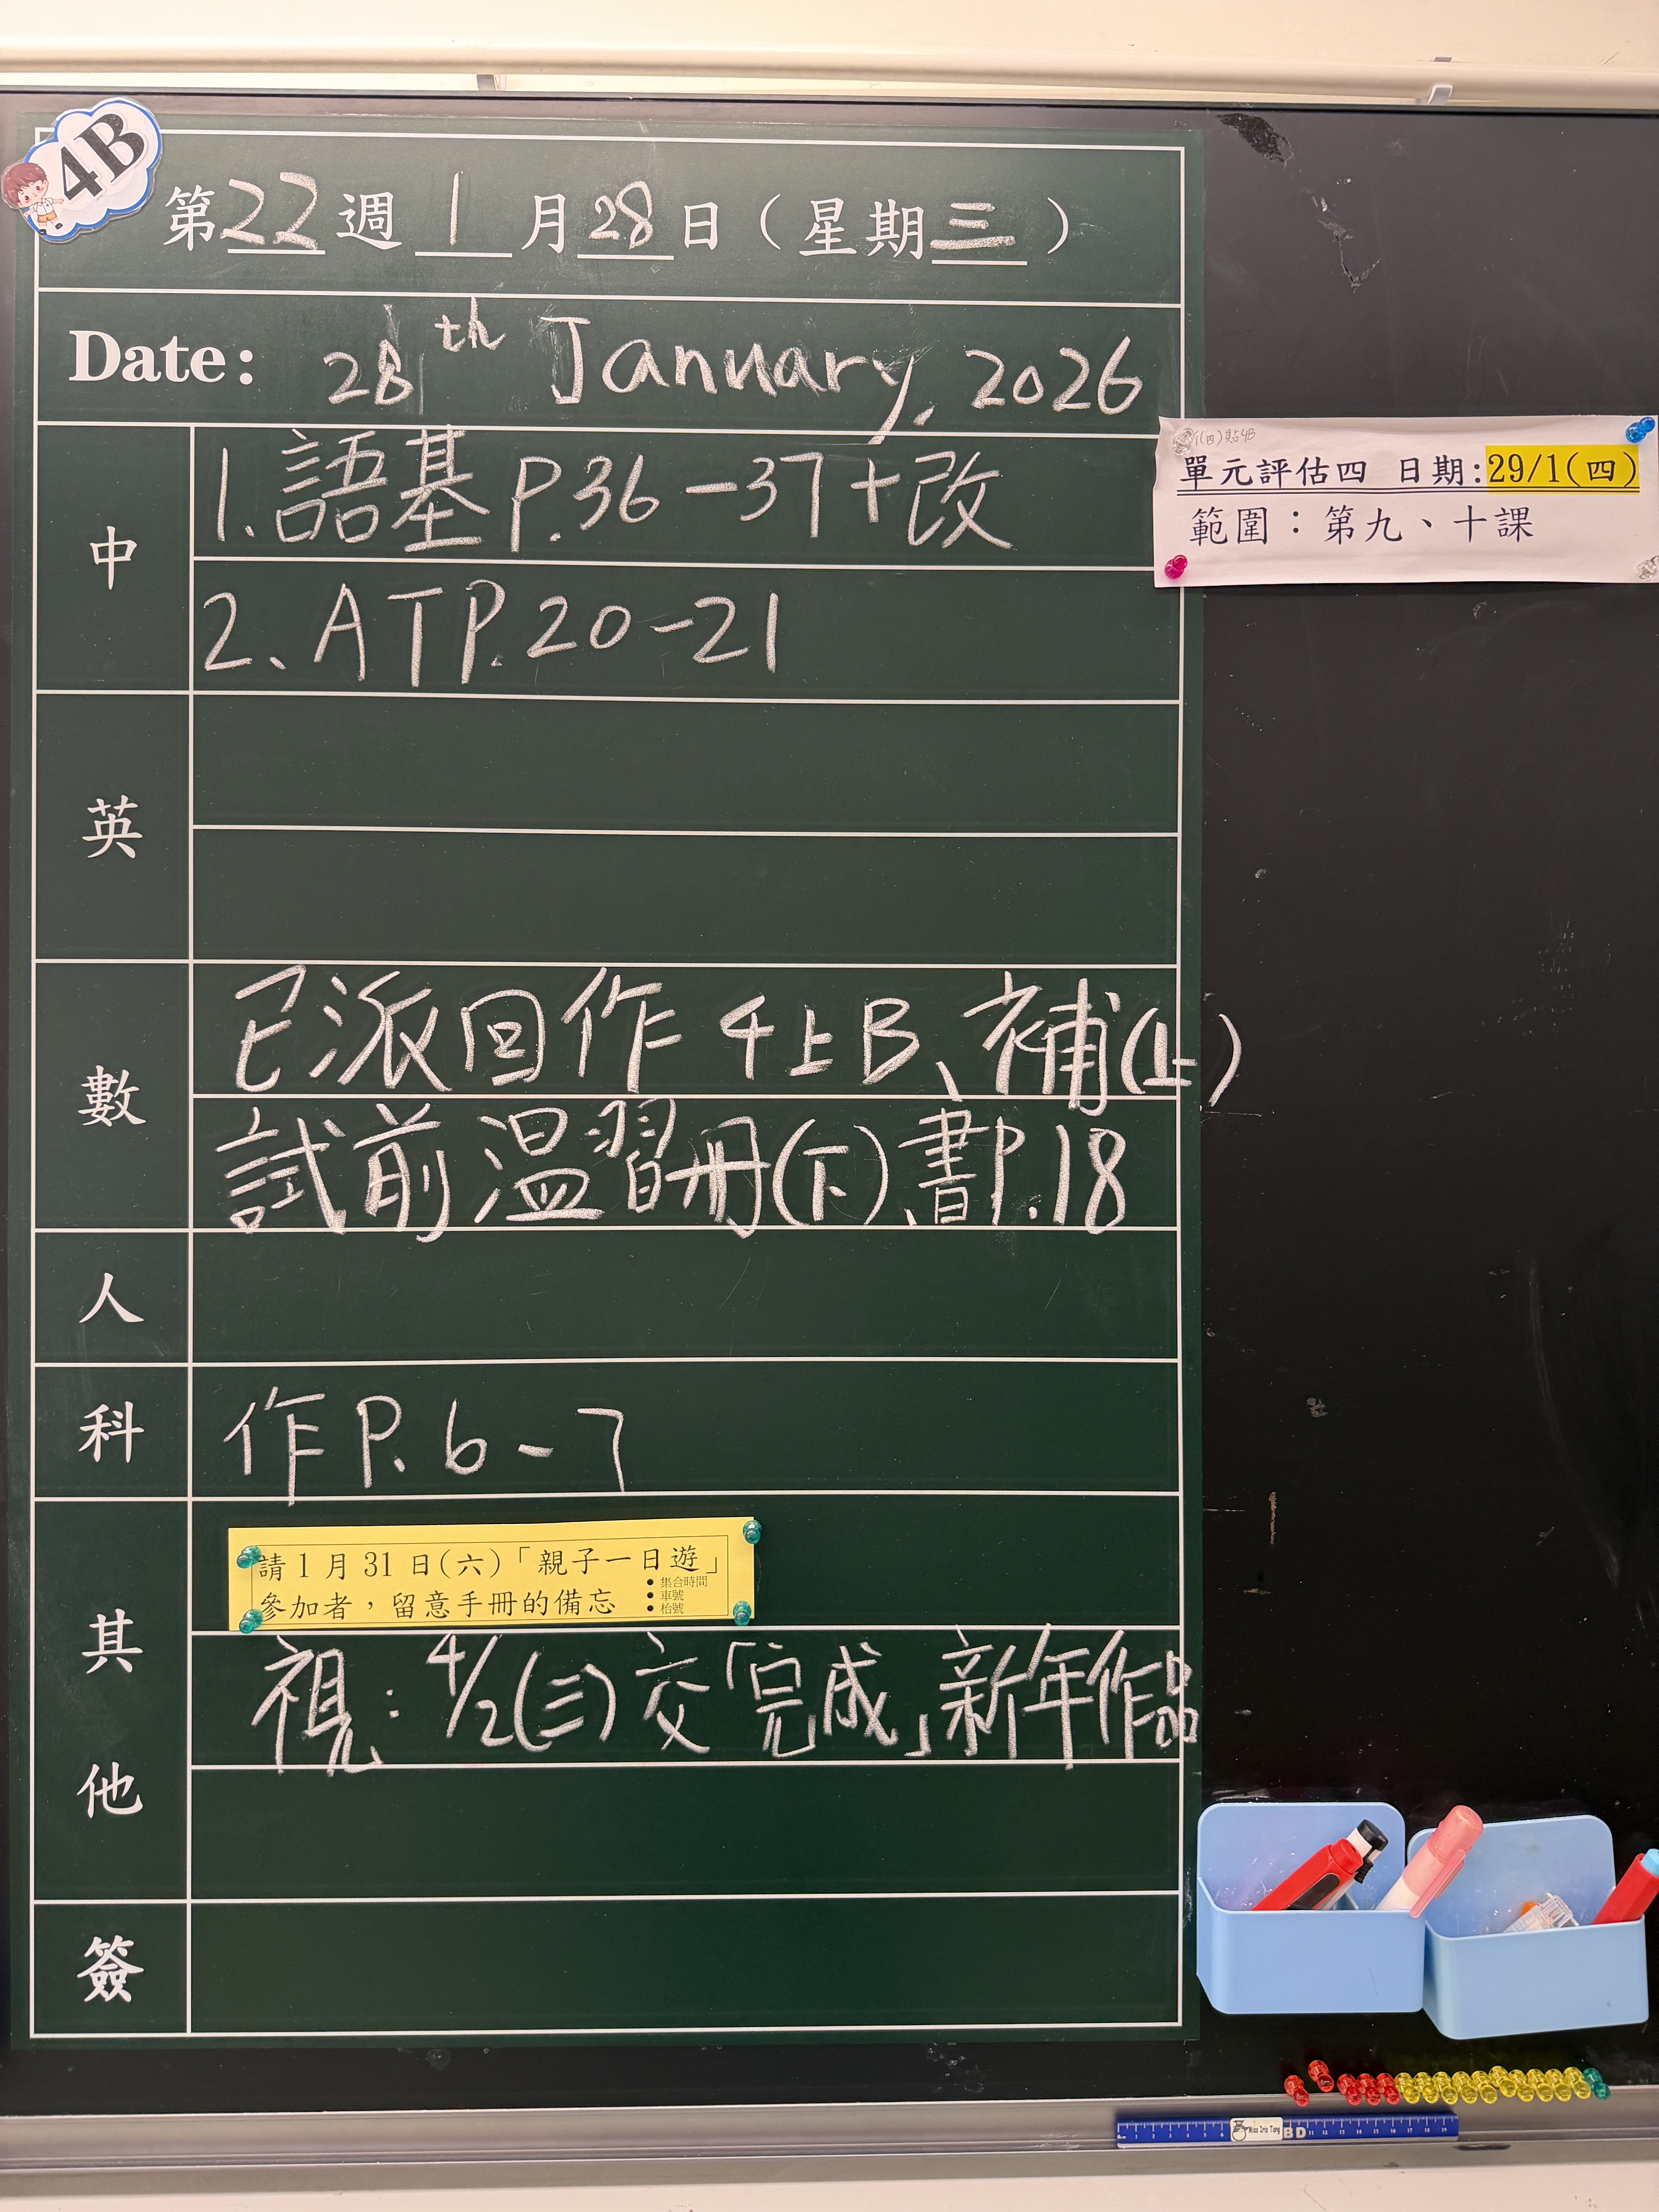 4B
第22週 1月28日（星期三）
Date: 28th January, 2026
中
1.語基P.36-37+改
2、ATP.20-21
單元評估四 日期:29/1(四)
範圍：第九、十課
英
數
已派回作4上B、補(上)
試前温習冊(下)、書P.18
人
科
作P.6-7
其他
請1月31日(六)「親子一日遊」
參加者，留意手冊的備忘
• 集合時間
• 車號
• 枱號
視：4/2(三)交「完成」新年作品
簽
Miss Iris Tang